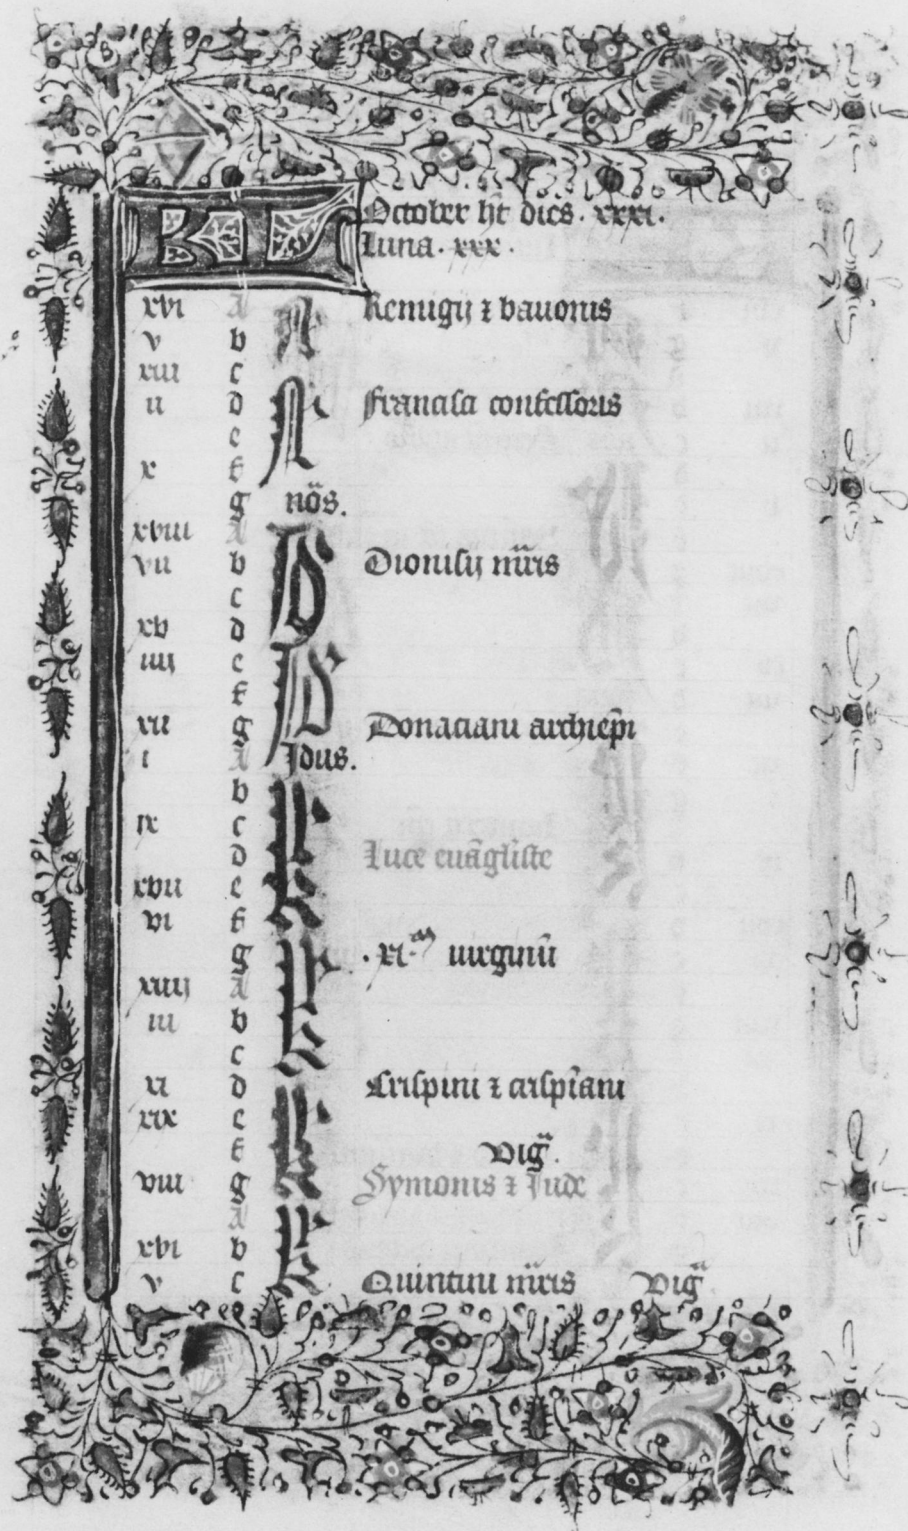 KL October ht̄ dies · xxxi ·
Luna · xxx ·
xvi A N Remigij ⁊ bauonis
v b
xiii c
ii d N Francisci confessoris
e
x f
g nōs.
xviii A
vii b D Dionisij mr̄is
c
xv d
iiij e D
f
xii g Donaciani archiep̄i
i A Idus.
b
ix c K
d Luce euāgl̄iste
xvii e
vi f
g K · xi.m virginū
xiiij A
iii b
c
xi d K Crispini ⁊ crispīani
xix e
f Viḡ.
viii g Symonis ⁊ Jude
A
xvi b K
v c Quintini mr̄is Viḡ